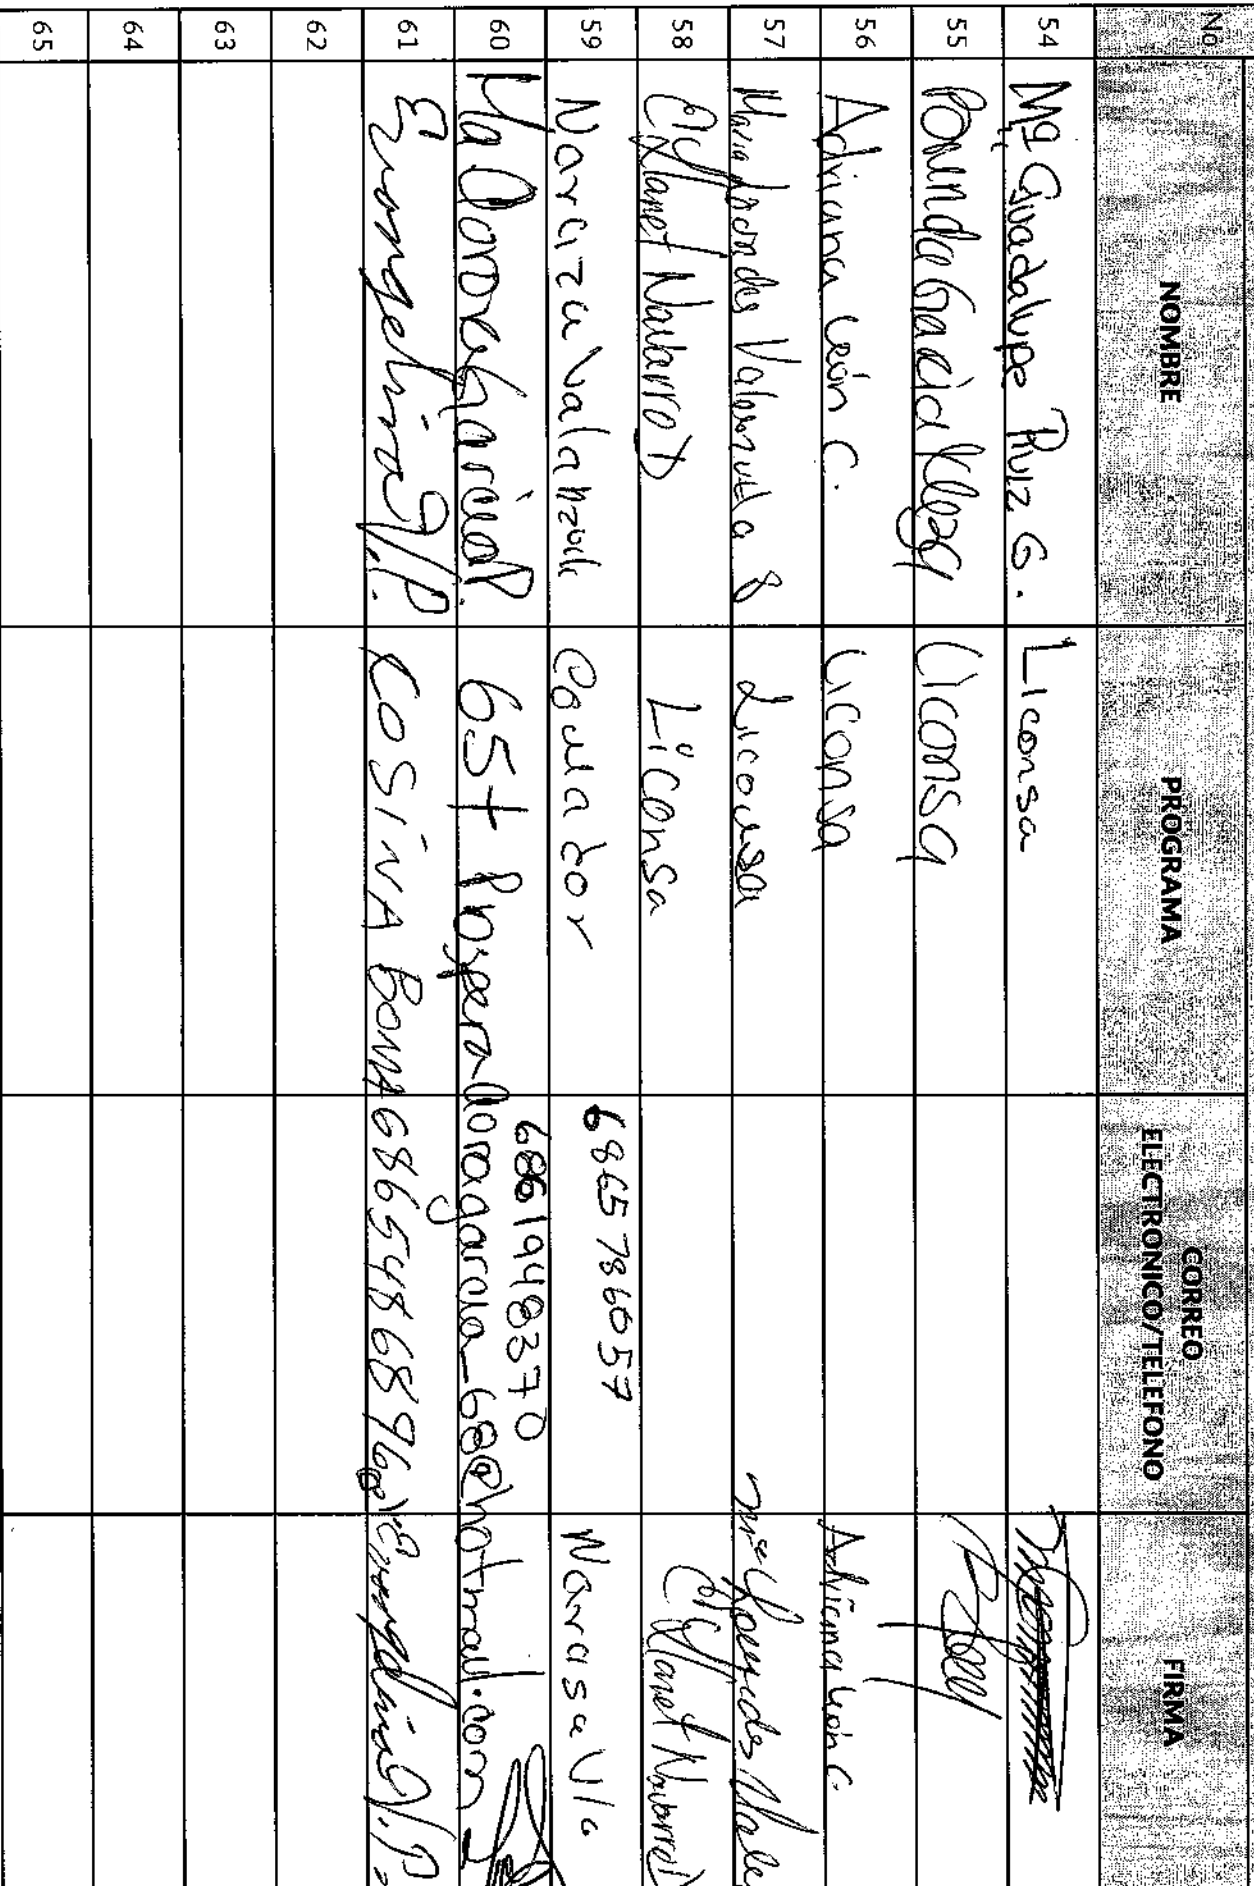 No. NOMBRE PROGRAMA CORREO ELECTRONICO/TELEFONO FIRMA
54 Ma Guadalupe Ruiz G. Liconsa
55 Garcia Liconsa
56 Adriana León C. Liconsa Adriana León C.
57 Maria Lourdes Valenzuela Liconsa Ma Lourdes Vale
58 Janet Navarro Liconsa Janet Navarro
59 Narciza Valanzuela 6865786057 Narcisa Vla
60 Ma Dora Garcia P. 65+ Prospera 6861948370
doragarcia_68@hotmail.com
61 Evangelina V.P. COSINA COMA Evangelina V.P.
62
63
64
65